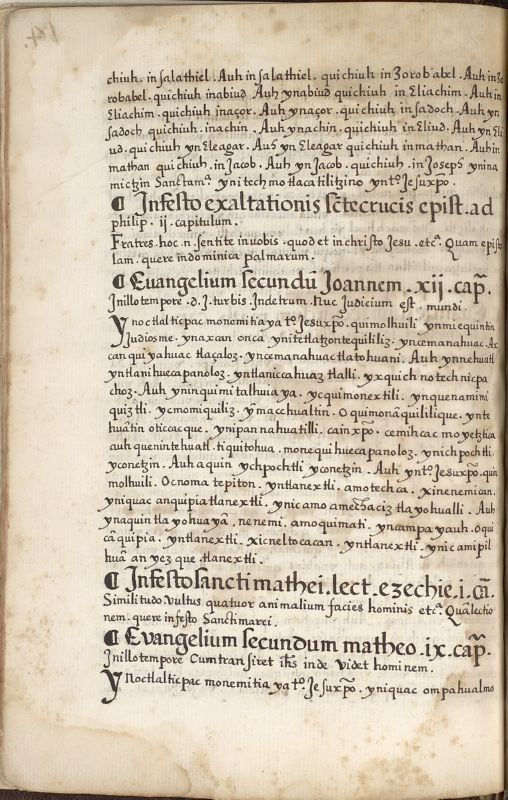 chiuh. in salathiel. Auh in salathiel. quichiuh in Zorobabel. Auh in Zo
robabel. quichiuh inabiud Auh ynabiud quichiuh in Eliachim. Auh in
Eliachim. quichiuh inaçor. Auh ynaçor. quichiuh in sadoch. Auh yn
sadoch quichiuh. inachin. Auh ynachin. quichiuh in Eliud. Auh yn Eli
ud. quichiuh yn Eleagar. Auh yn Eleagar quichiuh in mathan. Auh in
mathan quichiuh. in Jacob. Auh yn Jacob. quichiuh. in Joseph ynina
mictzin Sanctamª. ynitechmotlacatilitzino yntº. Jesuxp̄o.
¶ Infesto exaltationis sc̄tecrucis epist. ad
philip. ij. capitulum.
Fratres. hoc. n. sentite in uobis. quod et in christo Jesu. etcª. Quam episto
lam. quere indominica palmarum.
¶ Euangelium secundū Joannem. xij. cap̄.
Inillo tempore. d. J. turbis. Indetrum. Nuc Judicium est. mundi.
Ynoctlalticpac monemitia ya tº. Jesuxp̄o. quimolhuili ynmiequintin
Judiosme. ynaxcan onca ynitetlatzontequililiz. yncemanahuac. Ax
can quiyahuac tlaçaloz. yncemanahuac tlatohuani. Auh ynnehuatl
yntlanihuecapanoloz. yntlaniccahuaz tlalli. yxquich notechnicpa
choz. Auh yninquimitalhuia ya. ycquimonextili. ynquenamimi
quiztli. ycmomiquiliz. ymacehualtin. Oquimonāquililique. ynte
huātin oticacque. ynipannahuatilli. cainxp̄o. cemihcac moyetztica
auh quenintehuatl. tiquitohua. monequi huecapanoloz. ynichpochtli
yconetzin. Auh aquin ychpochtli yconetzin. Auh yntº. Jesuxp̄o. quin
molhuili. Ocnoma tepiton. yntlanextli. amotechca. xinenemican.
yniquac anquipia tlanextli. ynicamo amechaciz tlayohualli. Auh
ynaquin tlayohuaya. nenemi. amoquimati. yncampa yauh. Oqui
cāquipia. yntlanextli. xicneltocacan. yntlanextli. ynicamipil
huā anyezque tlanextli.
¶ Infesto sancti mathei. lect. ezechie. i. cā.
Similitudo. vultus quatuor animalium facies hominis etcª. Quālectio
nem. quere infesto Sanctimarci.
¶ Evangelium secundum matheo. ix. cap̄.
Inillo tempore Cumtransiret ihs̄ inde Videt hominem.
Ynoctlalticpac monemitia ya tº. Jesuxp̄o. yniquac ompahualmo